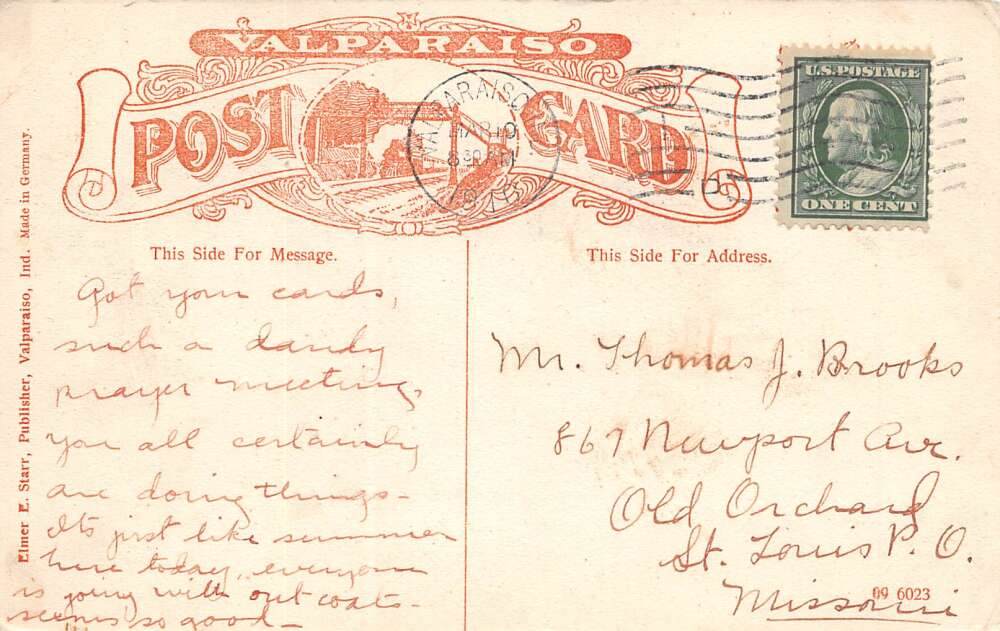 VALPARAISO
POST CARD
VALPARAISO
MAR 19
8 30 AM
U.S. POSTAGE
ONE CENT
This Side For Message.
This Side For Address.
Elmer E. Starr, Publisher, Valparaiso, Ind. Made in Germany.
Got your cards,
such a dandy
prayer meeting,
you all certainly
are doing things-
Its just like summer
here today, everyone
is going with out coats-
seems so good-
Mr. Thomas J. Brooks
867 Newport Ave.
Old Orchard
St. Louis P. O.
Missouri
09 6023